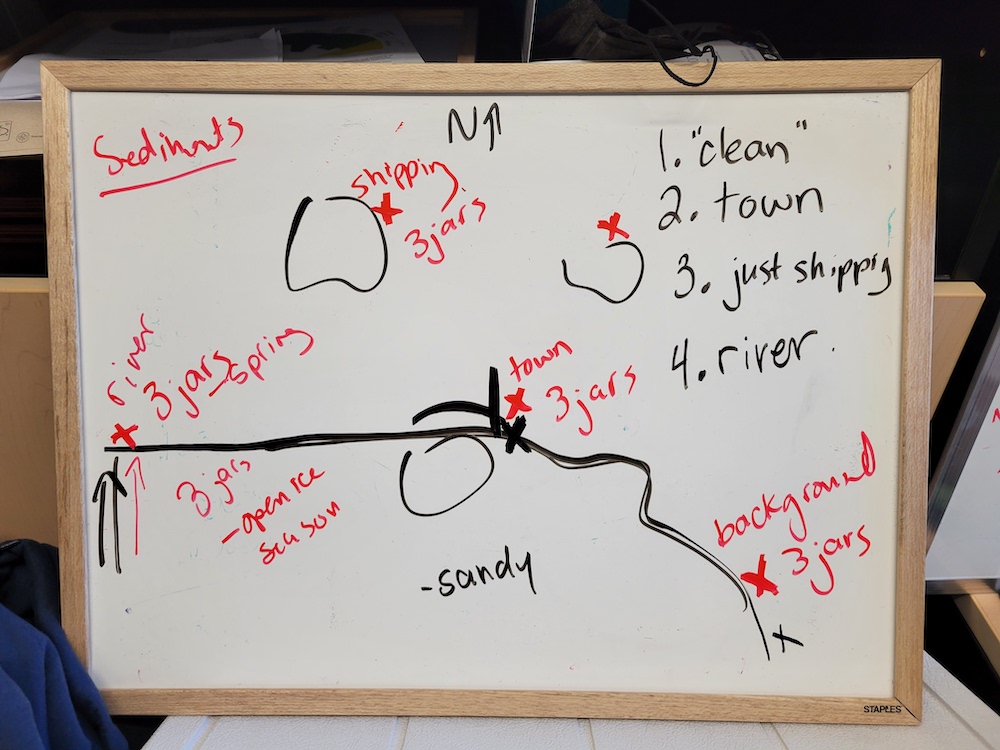 Sediments
N↑
shipping
3 jars
1. "clean"
2. town
3. just shippig
4. river.
river
3 jars
-spring
town
3 jars
3 jars
-open ice
season
background
3 jars
-sandy
STAPLES